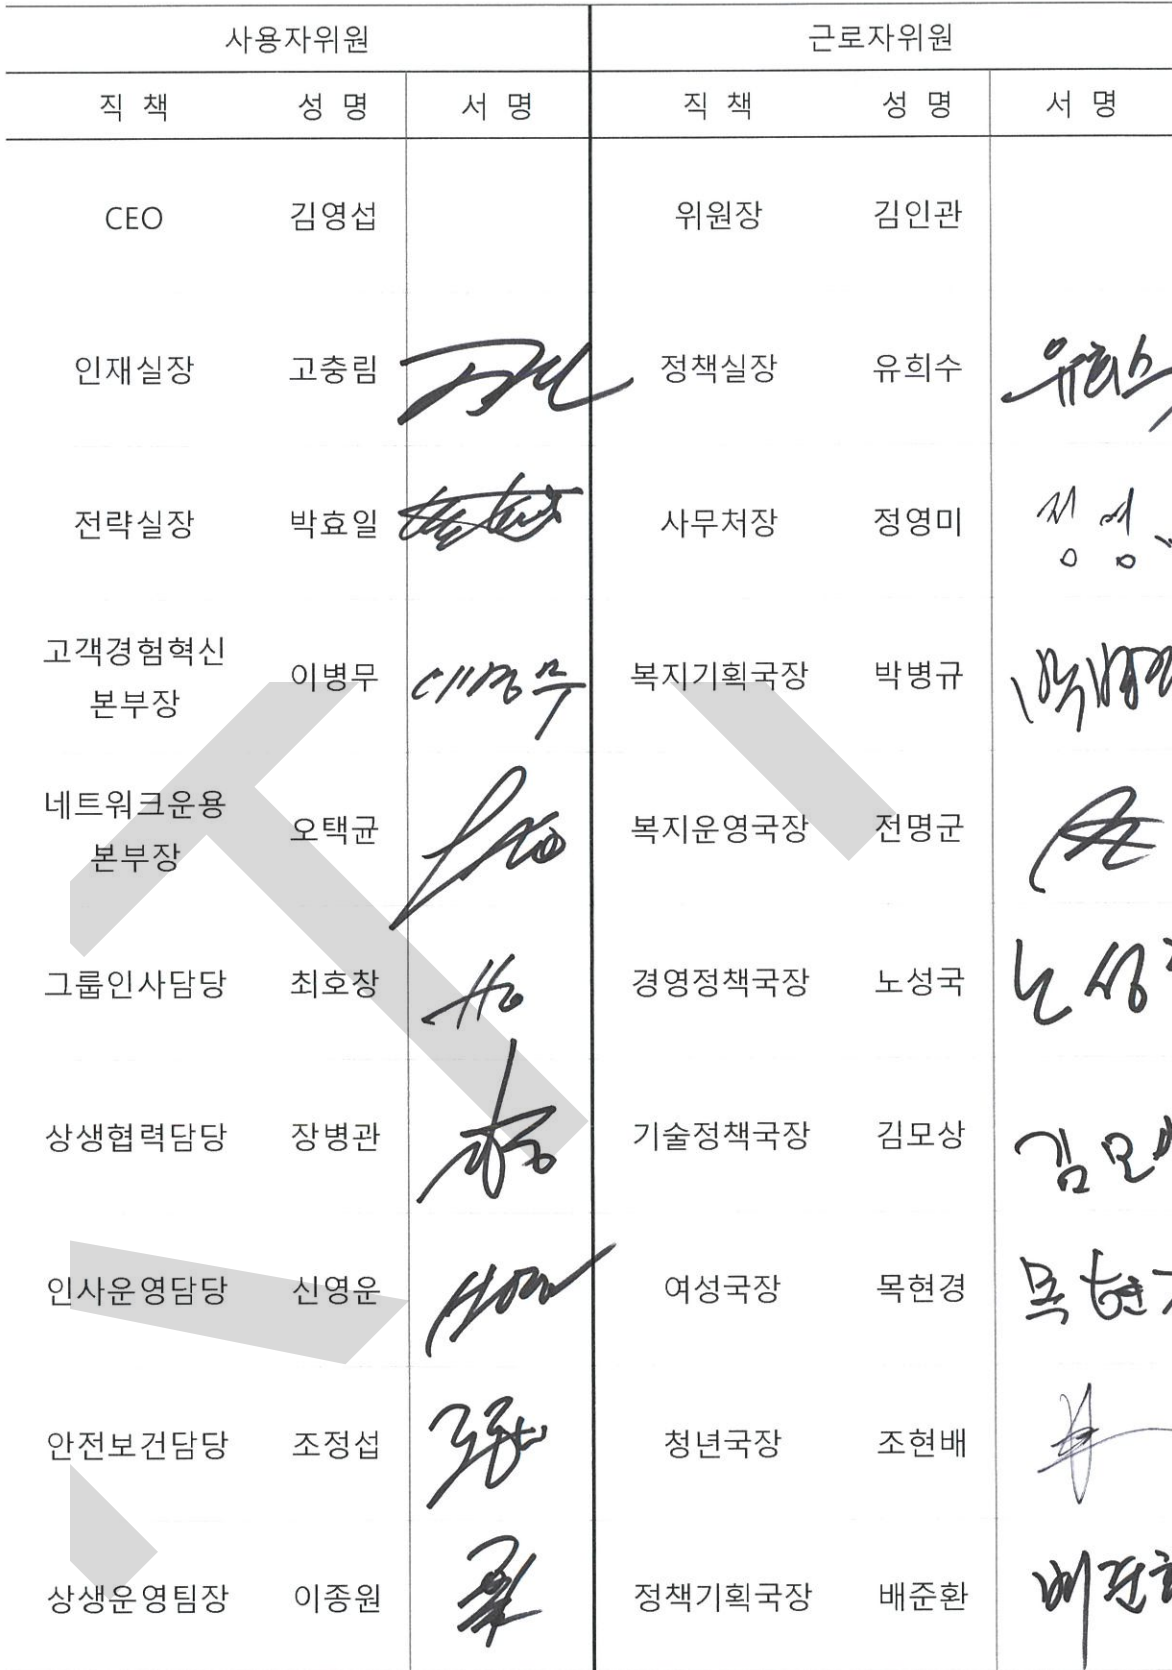 사용자위원 근로자위원
직 책 성 명 서 명 직 책 성 명 서 명
CEO 김영섭 위원장 김인관
인재실장 고충림 정책실장 유희수 유희수
전략실장 박효일 사무처장 정영미 정영
고객경험혁신
본부장 이병무 이병무 복지기획국장 박병규 박병규
네트워크운용
본부장 오택균 복지운영국장 전명군
그룹인사담당 최호창 경영정책국장 노성국 노성
상생협력담당 장병관 기술정책국장 김모상 김모상
인사운영담당 신영운 여성국장 목현경 목현
안전보건담당 조정섭 청년국장 조현배
상생운영팀장 이종원 정책기획국장 배준환 배준환